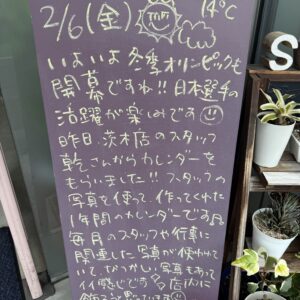 2/6(金) 14℃
いよいよ冬季オリンピックも
開幕ですね!!日本選手の
活躍が楽しみです
昨日、茨木店のスタッフ
乾さんからカレンダーを
もらいました!!スタッフの
写真を使って、作ってくれた
1年間のカレンダーです
毎月のスタッフや行事に
関連した写真が使われて
いて、なつかしい写真もあって
イイ感じです 店内に
S